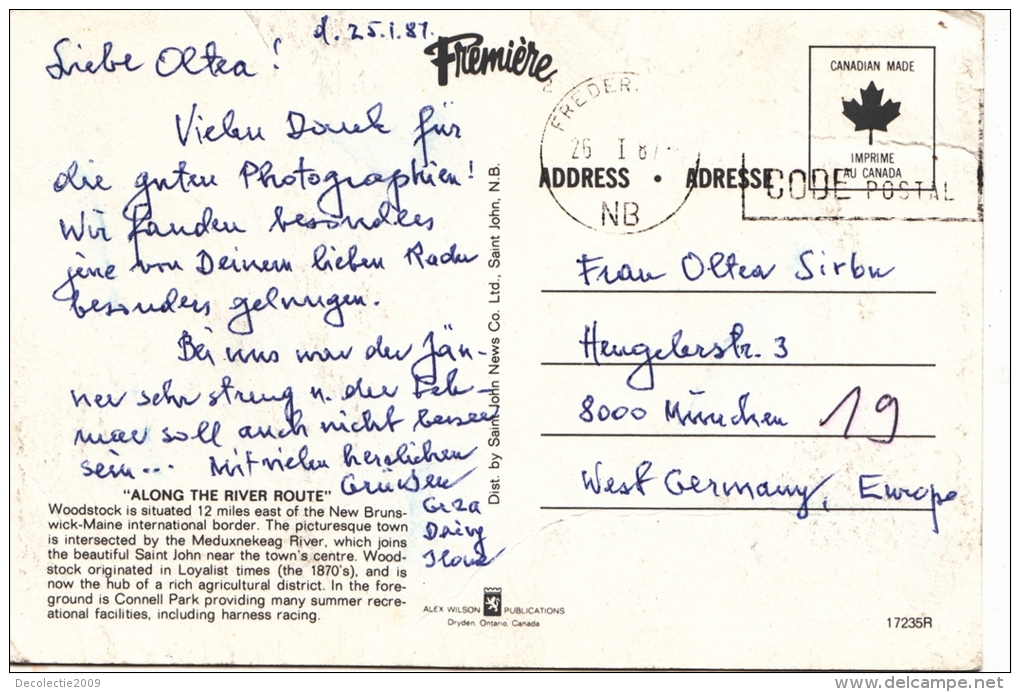 d. 25.I.87.
Liebe Oltea!
Vielen Dank für
die guten Photographien!
Wir fanden besonders
jene von Deinem lieben Radu
besonders gelungen.
Bei uns war der Jän-
ner sehr streng u. der Feb-
ruar soll auch nicht besser
sein... Mit vielen herzlichen
Grüssen
Geza
Ilona
"ALONG THE RIVER ROUTE"
Woodstock is situated 12 miles east of the New Bruns-
wick-Maine international border. The picturesque town
is intersected by the Meduxnekeag River, which joins
the beautiful Saint John near the town's centre. Wood-
stock originated in Loyalist times (the 1870's), and is
now the hub of a rich agricultural district. In the fore-
ground is Connell Park providing many summer recre-
ational facilities, including harness racing.
Première
Dist. by Saint John News Co. Ltd., Saint John, N.B.
ALEX WILSON PUBLICATIONS
Dryden, Ontario, Canada
FREDER
26 I 87
NB
CANADIAN MADE
IMPRIME
AU CANADA
CODE POSTAL
ADDRESS • ADRESSE
Frau Oltea Sirbu
Hengelerstr. 3
8000 München 19
West Germany, Europe
17235R
Decolectie2009
delcampe.net